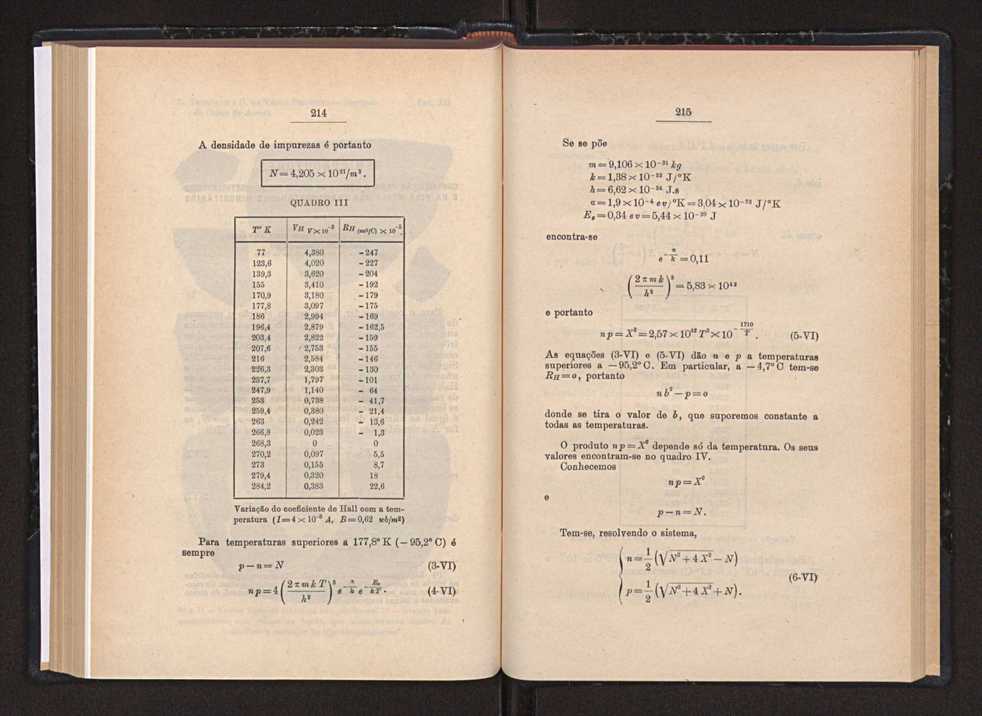 214
A densidade de impurezas é portanto
N = 4,205 × 10²¹/m³.
QUADRO III
Tº K   V_H V × 10⁻³   R_H (m³/C) × 10⁻⁵
77   4,380   - 247
123,6   4,020   - 227
139,3   3,620   - 204
155   3,410   - 192
170,9   3,180   - 179
177,8   3,097   - 175
186   2,994   - 169
196,4   2,879   - 162,5
203,4   2,822   - 159
207,6   2,753   - 155
216   2,584   - 146
226,3   2,303   - 130
237,7   1,797   - 101
247,9   1,140   - 64
253   0,738   - 41,7
259,4   0,380   - 21,4
263   0,242   - 13,6
266,8   0,023   - 1,3
268,3   0   0
270,2   0,097   5,5
273   0,155   8,7
279,4   0,320   18
284,2   0,383   22,6
Variação do coeficiente de Hall com a tem-
peratura (I = 4 × 10⁻³ A, B = 0,62 wb/m²)
Para temperaturas superiores a 177,8º K (– 95,2º C) é
sempre
p – n = N (3-VI)
n p = 4 (2 π m k T / h²)³ e^(– α/k) e^(– E₀/kT). (4-VI)
215
Se se põe
m = 9,106 × 10⁻³¹ kg
k = 1,38 × 10⁻²³ J/ºK
h = 6,62 × 10⁻³⁴ J.s
α = 1,9 × 10⁻⁴ ev/ºK = 3,04 × 10⁻²³ J/ºK
E₀ = 0,34 ev = 5,44 × 10⁻²⁰ J
encontra-se
e^(– α/k) = 0,11
(2 π m k / h²)³ = 5,83 × 10⁴³
e portanto
n p = X² = 2,57 × 10⁴³ T³ × 10^(– 1710/T). (5-VI)
As equações (3-VI) e (5-VI) dão n e p a temperaturas
superiores a – 95,2º C. Em particular, a – 4,7º C tem-se
R_H = o, portanto
n b² – p = o
donde se tira o valor de b, que suporemos constante a
todas as temperaturas.
O produto n p = X² depende só da temperatura. Os seus
valores encontram-se no quadro IV.
Conhecemos
n p = X²
e
p – n = N.
Tem-se, resolvendo o sistema,
n = 1/2 (√(N² + 4 X²) – N)
p = 1/2 (√(N² + 4 X²) + N). (6-VI)